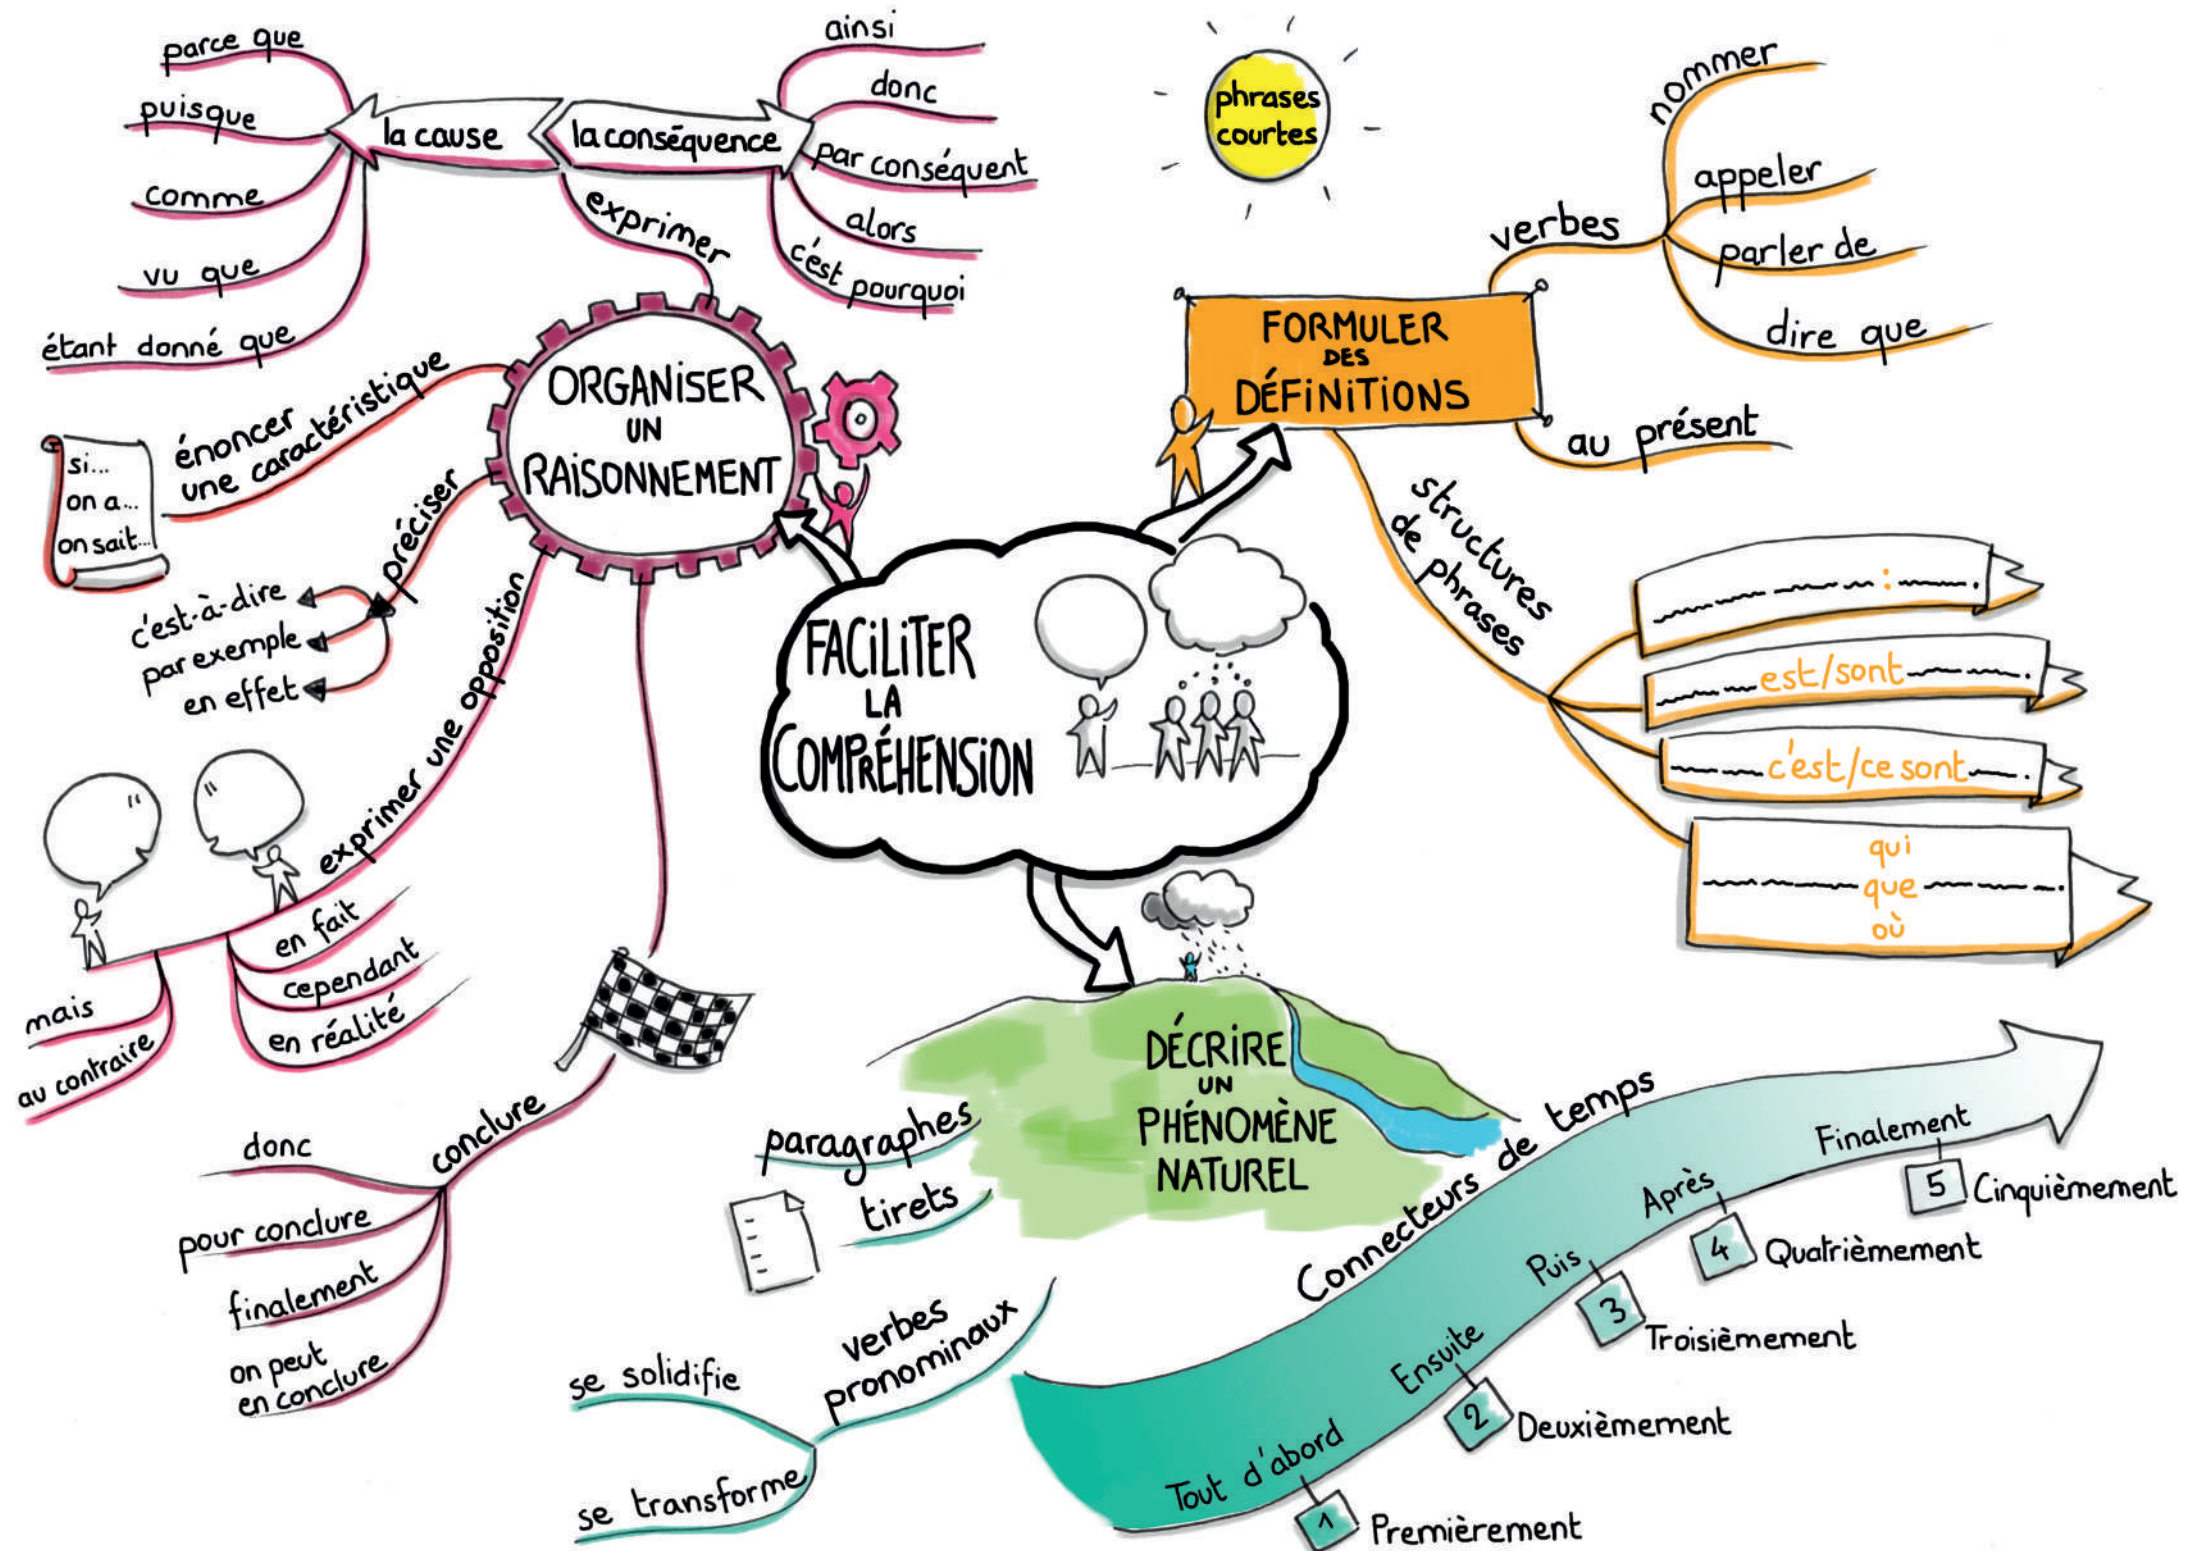 FACiLiTER
LA
COMPRÉHENSiON
ORGANiSER
UN
RAiSONNEMENT
exprimer
la cause
parce que
puisque
comme
vu que
étant donné que
la conséquence
ainsi
donc
par conséquent
alors
c'est pourquoi
énoncer
une caractéristique
si...
on a...
on sait...
préciser
c'est-à-dire
par exemple
en effet
exprimer une opposition
en fait
cependant
en réalité
mais
au contraire
conclure
donc
pour conclure
finalement
on peut
en conclure
phrases
courtes
FORMULER
DES
DÉFiNiTiONS
verbes
nommer
appeler
parler de
dire que
au présent
structures
de phrases
:
est/sont
c'est/ce sont
qui
que
où
DÉCRiRE
UN
PHÉNOMÈNE
NATUREL
paragraphes
tirets
verbes
pronominaux
se solidifie
se transforme
Connecteurs de temps
Tout d'abord
1 Premièrement
Ensuite
2 Deuxièmement
Puis
3 Troisièmement
Après
4 Quatrièmement
Finalement
5 Cinquièmement